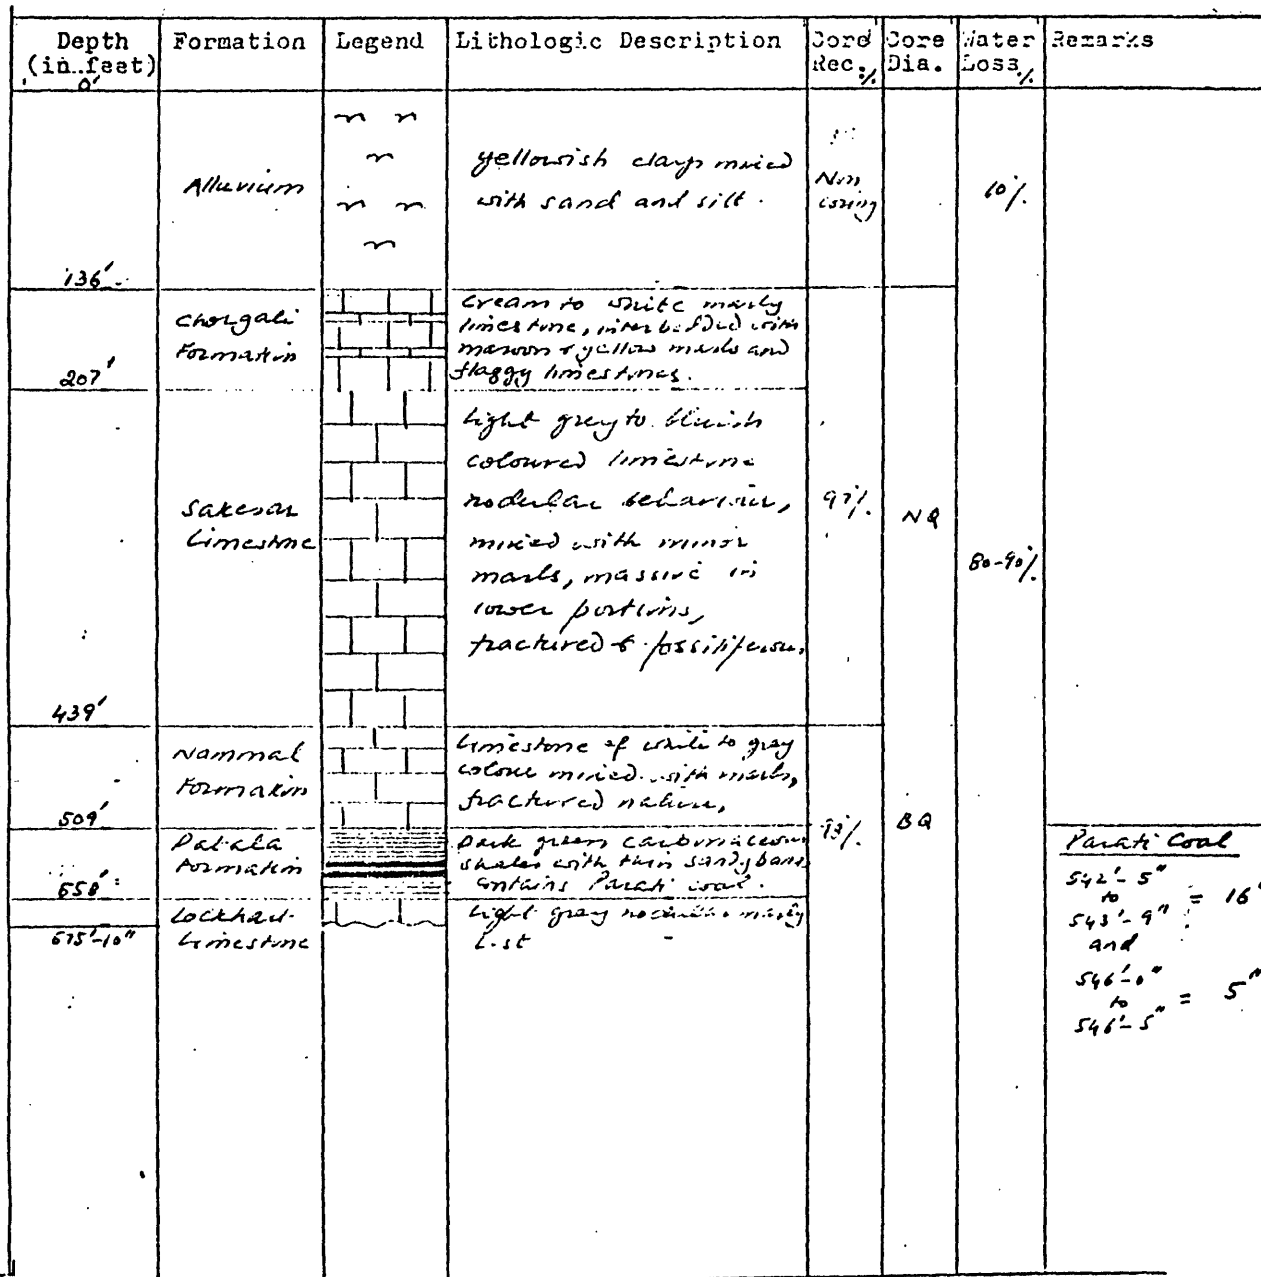 Depth Formation Legend Lithologic Description Core Core Water Remarks
(in feet) Rec.% Dia. Loss%
0'
Alluvium
yellowish clay mixed
with sand and silt.
Non
coring
10%
136'
Chorgali
Formation
Cream to white marly
limestone, interbedded with
maroon & yellow marls and
flaggy limestones.
207'
Sakesar
Limestone
Light grey to bluish
coloured limestone
nodular behaviour,
mixed with minor
marls, massive in
lower portions,
fractured & fossiliferous.
97%
NQ
80-90%
439'
Nammal
Formation
Limestone of white to grey
colour mixed with marls,
fractured nature,
509'
BQ
Patala
Formation
Dark green carbonaceous
shales with thin sandy bands
contains Parati coal.
Parati Coal
542'-5"
to = 16"
543'-9"
and
546'-0"
to = 5"
546'-5"
Lockhart
Limestone
Light grey nodular marly
L.st